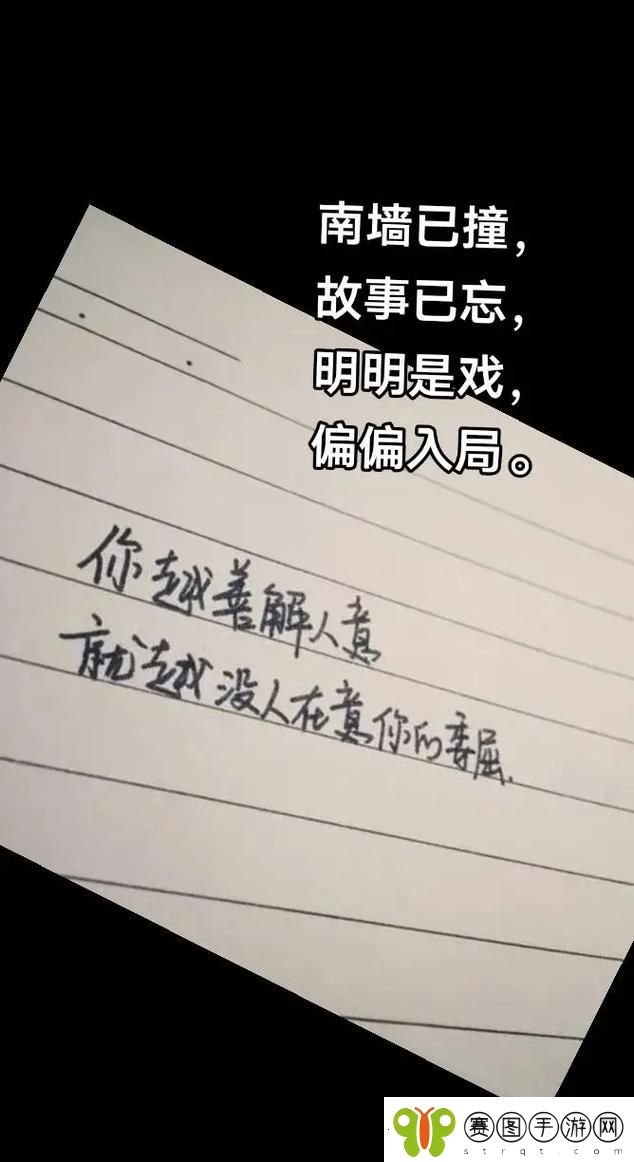 南墙已撞，
故事已忘，
明明是戏，
偏偏入局。
你越善解人意
就越没人在意你的委屈.
赛图手游网
strqt.com